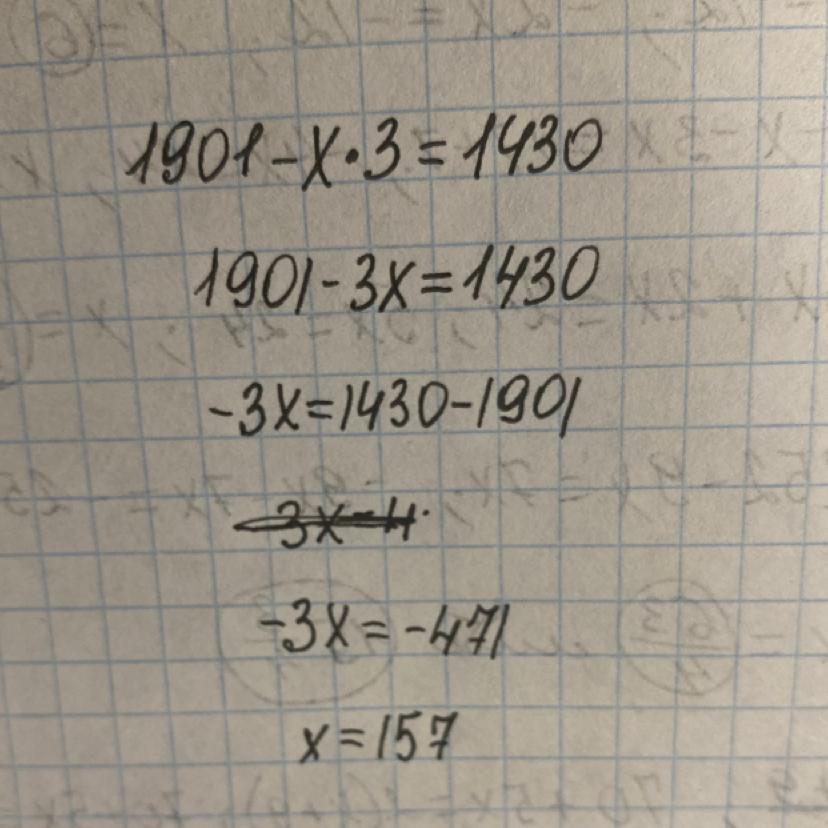 1901-x·3=1430
1901-3x=1430
-3x=1430-1901
3x-4
-3x=-471
x=157